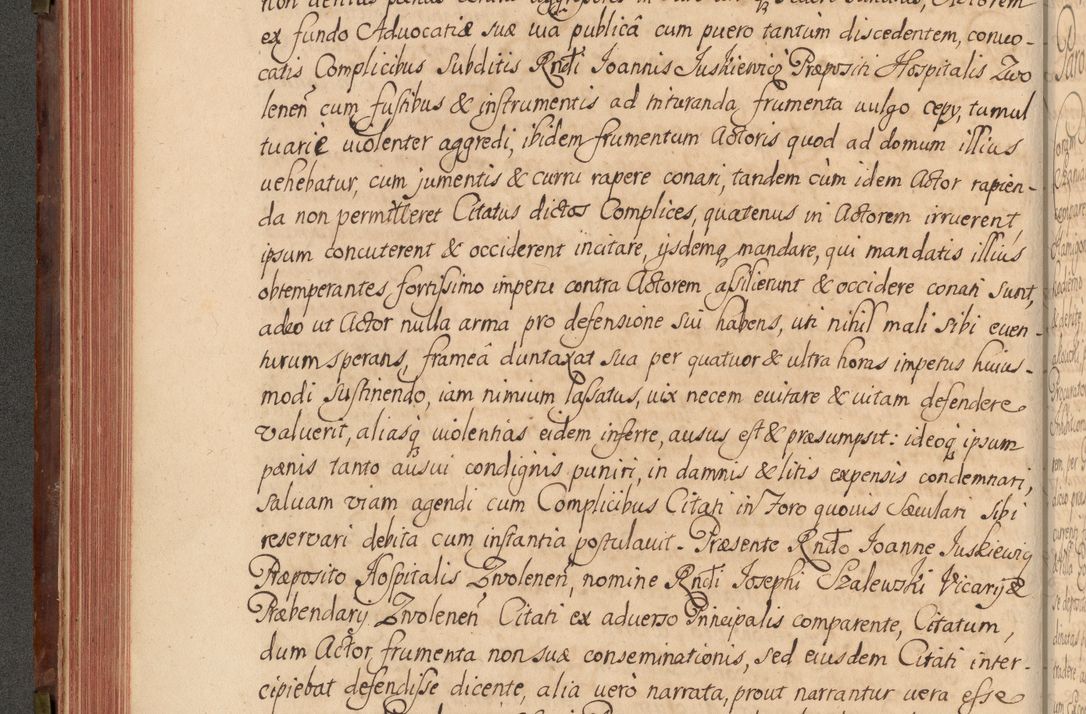 ex fundo Advocatiæ suæ via publicâ cum puero tantùm discedentem, convo-
catis Complicibus Subditis Rndi Joannis Juskiewicz Præpositi Hospitalis Zwo
lenen cum fustibus & instrumentis ad trituranda frumenta vulgo cepy, tumul
tuariè violenter aggredi, ibidem frumentum Actoris quod ad domum illius
vehebatur, cum jumentis & curru rapere conari, tandem cùm idem Actor rapien-
da non permitteret Citatus dictos Complices, quatenus in Actorem irruerent,
ipsum concuterent & occiderent incitare, ijsdemq mandare, qui mandatis illius
obtemperantes fortissimo impetu contra Actorem assilierunt & occidere conati sunt,
adeo ut Actor nulla arma pro defensione sui habens, uti nihil mali sibi even-
turum sperans, frameâ duntaxat sua per quatuor & ultra horas impetus huius-
modi sustinendo, iam nimium lassatus, vix necem evitare & vitam defendere
valuerit, aliasq violentias eidem inferre, ausus est & præsumpsit: ideoq ipsum
pænis tanto ausui condignis puniri, in damnis & litis expensis condemnari,
salvam viam agendi cum Complicibus Citati in Foro quovis Sæculari sibi
reservari debita cum instantia postulavit. Præsente Rndo Joanne Juskiewicz
Præposito Hospitalis Zwolenen, nomine Rndi Josephi Szalewski Vicarij &
Præbendarij Zwolenen Citati ex adverso Principalis comparente, Citatum,
dum Actor frumenta non suæ conseminationis, sed eiusdem Citati inter-
cipiebat defendisse dicente, alia verò narrata, prout narrantur vera esse